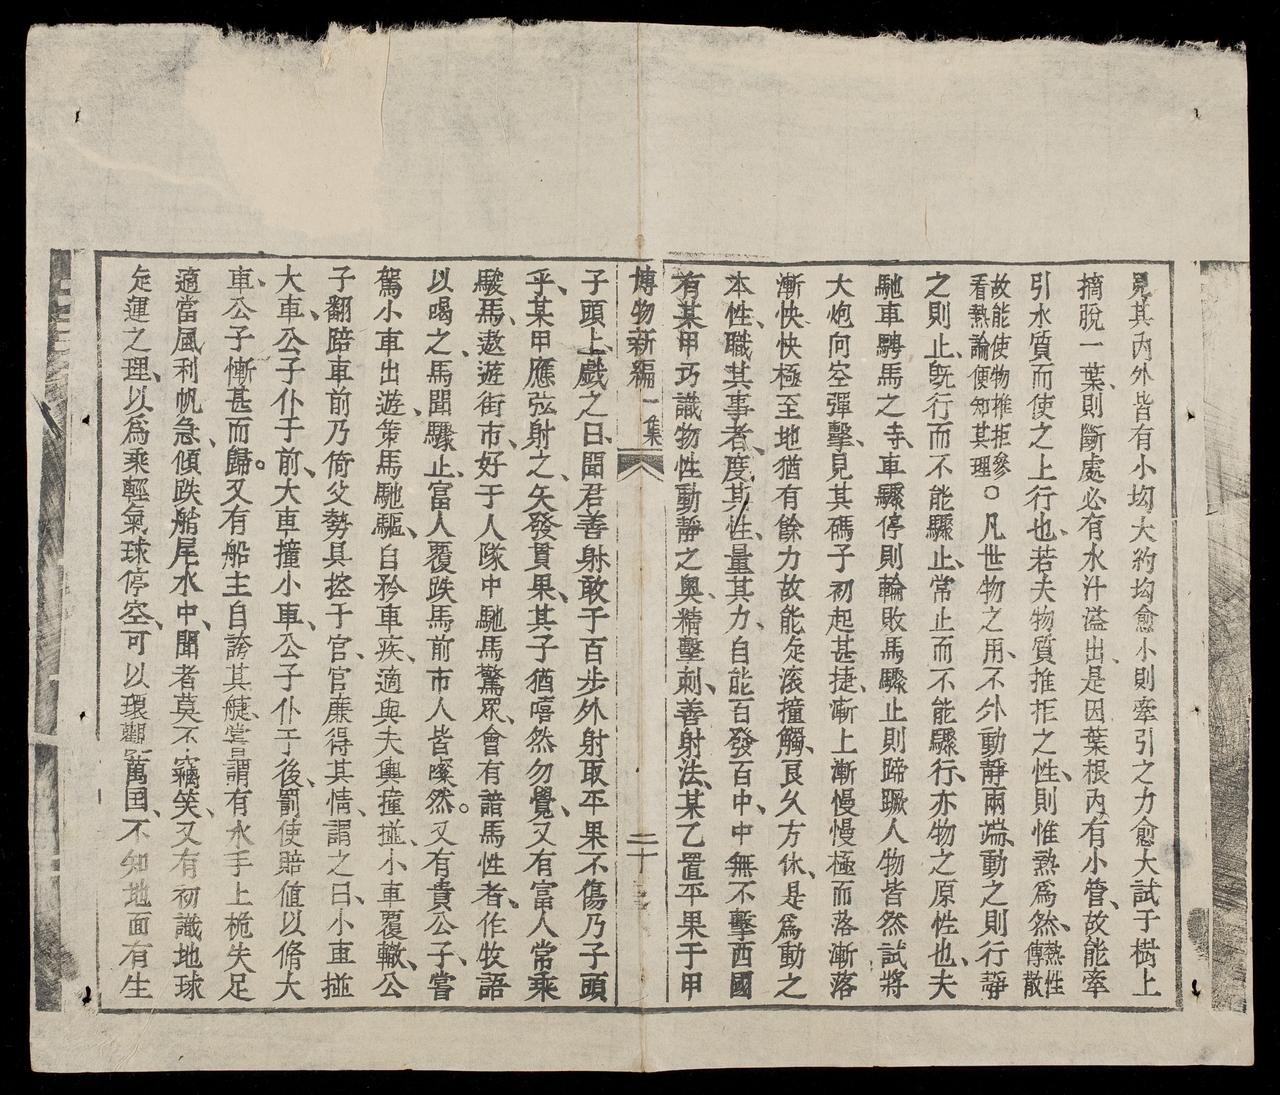 見其內外皆有小㘭大約㘭愈小則牽引之力愈大試于樹上
摘脫一葉、則斷處必有水汁溢出、是因葉根內有小管、故能牽
引水質而使之上行也、若夫物質推拒之性、則惟熱爲然、熱性傳散
故能使物推拒參看熱論便知其理○凡世物之用、不外動靜兩端、動之則行靜
之則止、旣行而不能驟止、常止而不能驟行、亦物之原性也、夫
馳車騁馬之寺、車驟停則輪敗馬驟止則蹄蹶人物皆然試將
大炮向空彈擊、見其碼子初起甚捷、漸上漸慢慢極而落漸落
漸快快極至地猶有餘力故能㝎滚撞觸、良久方休、是爲動之
本性、職其事者、度其性、量其力、自能百發百中、中無不擊西國
有某甲巧識物性動靜之奧、精擊刺、善射法、某乙置平果于甲
博物新編一集
二十三
子頭上、戲之曰、聞君善射敢于百步外射取平果不傷乃子頭
乎、某甲應弦射之、矢發貫果、其子猶嘻然勿覺、又有富人常乘
駿馬、遨遊街市、好于人隊中馳馬驚眾、會有諳馬性者、作牧語
以喝之、馬聞驟止、富人覆跌馬前市人皆燦然。又有貴公子、嘗
駕小車出遊、策馬馳驅、自矜車疾、適與夫輿撞㨪、小車覆轍、公
子翻踣車前乃倚父勢具控于官、官廉得其情、謂之曰、小車㨪
大車、公子仆于前、大車撞小車、公子仆于後、罰使賠值以脩大
車、公子慚甚而歸。又有船主自誇其艇、嘗謂有水手上桅失足
適當風利帆急、傾跌船尾水中、聞者莫不竊笑、又有初識地球
㝎運之理、以爲乘輕氣球停空、可以環觀萬国、不知地面有生